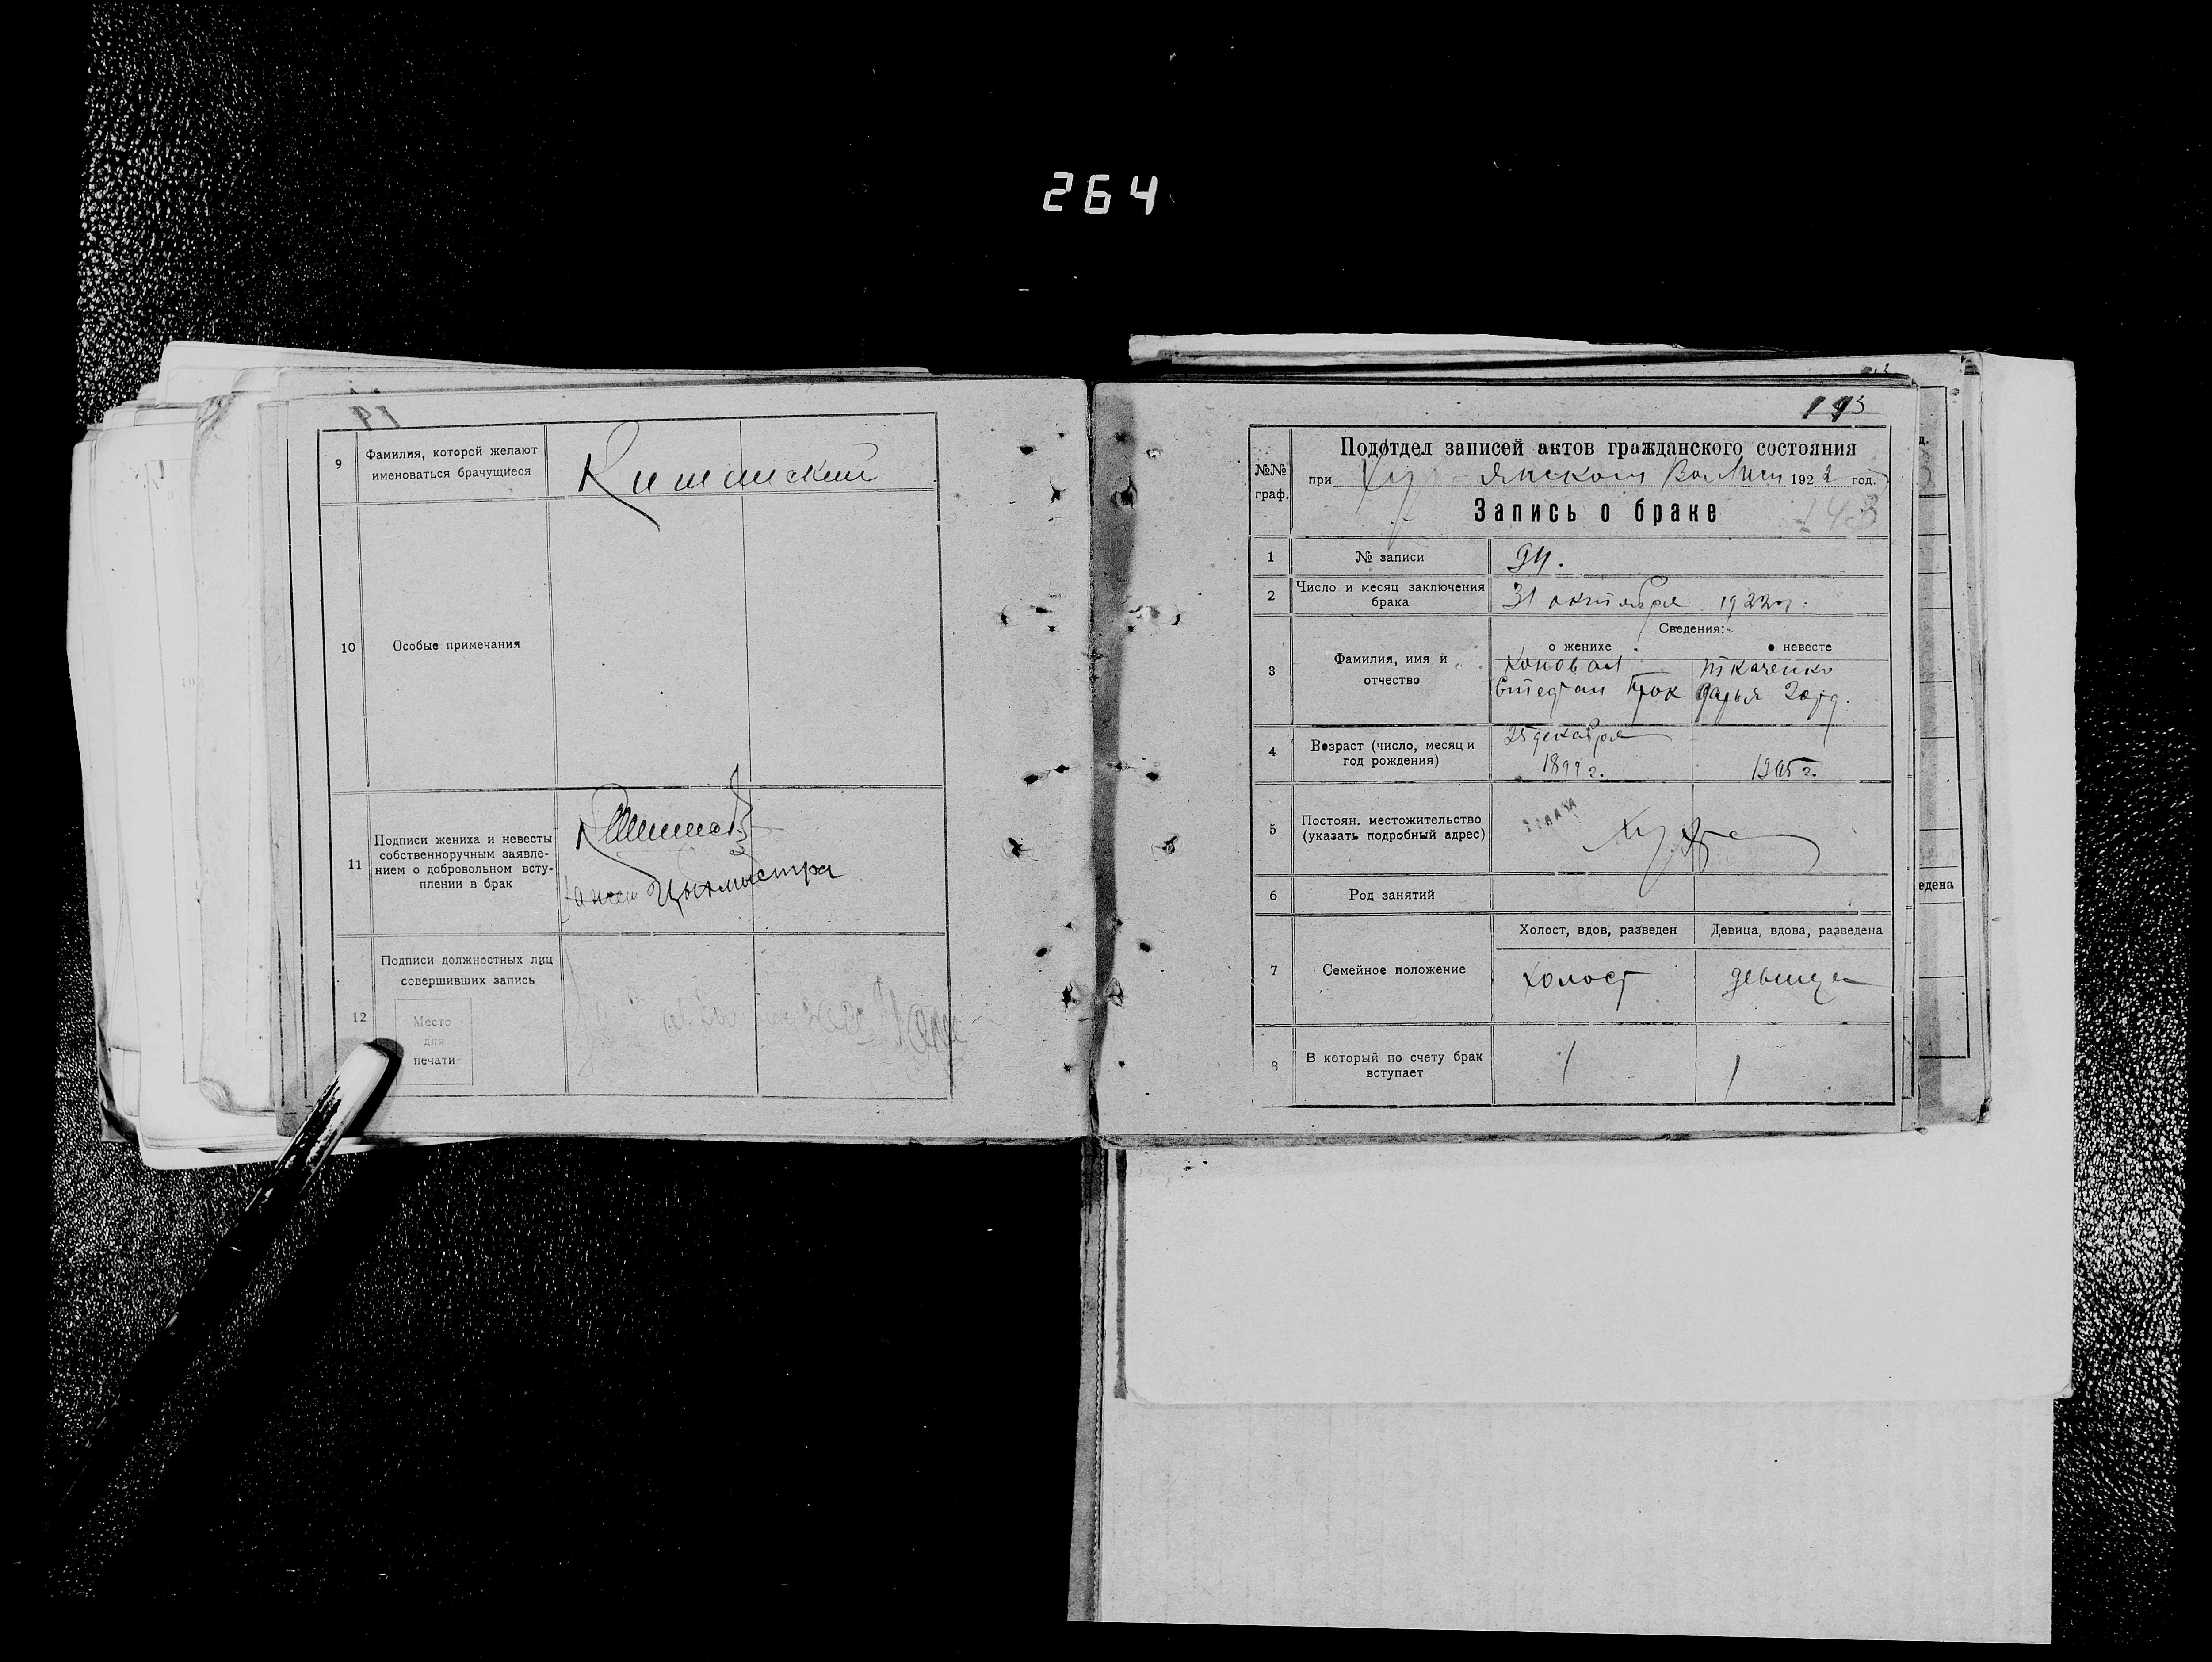 264
9
Фамилия, которой желают
именоваться брачущиеся
10
Особые примечания
11
Подписи жениха и невесты
собственноручным заявле-
нием о добровольном всту-
плении в брак
Цыхмыстра
12
Подписи должностных лиц
совершивших запись
Место
для
печати
№№
граф.
Подотдел записей актов гражданского состояния
при 1922 год.
Запись о браке
143
1
№ записи
94.
2
Число и месяц заключения
брака
31 октября 1922 г.
3
Фамилия, имя и
отчество
Сведения:
о женихе
о невесте
Коновал
Стефан Прок
Ткаченко
Дарья
4
Возраст (число, месяц и
год рождения)
25 декабря
1899 г.
1905 г.
5
Постоян. местожительство
(указать подробный адрес)
6
Род занятий
7
Семейное положение
Холост, вдов, разведен
Девица, вдова, разведена
холост
девица
8
В который по счету брак
вступает
1
1
едена